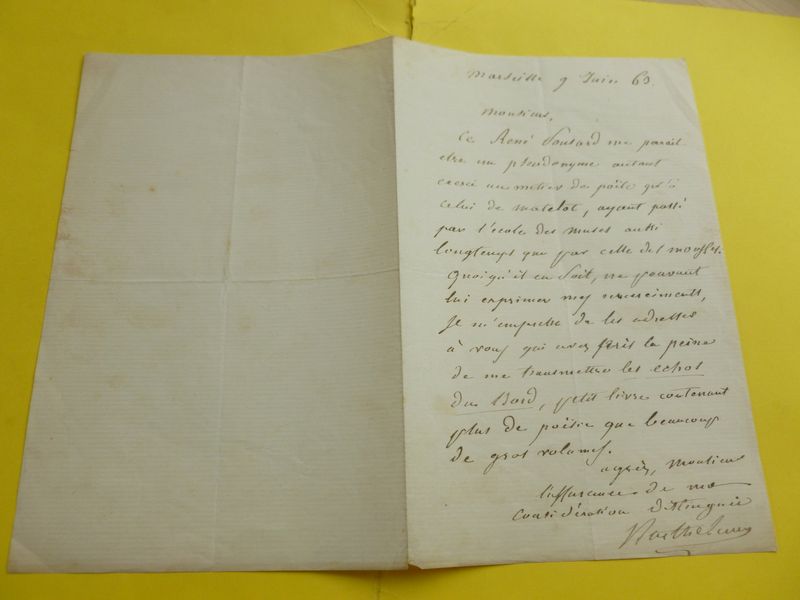 Marseille 9 Juin 63.
Monsieur,
Ce René Pontard me parait
etre un pseudonyme autant
exercé au métier de poëte qu'à
celui de matelot, ayant passé
par l'école des muses aussi
longtemps que par celle des mousses.
Quoiqu'il en soit, ne pouvant
lui exprimer mes remerciments,
Je m'empresse de les adresser
à vous qui avez pris la peine
de me transmettre les echos
du Bord, petit livre contenant
plus de poësie que beaucoup
de gros volumes.
agréez, Monsieur
l'assurance de ma
considération distinguée
Barthelemy